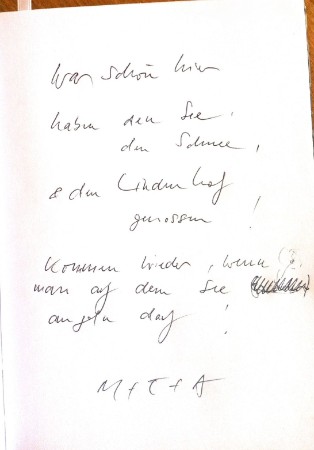 War schön hier
haben den See,
den Schnee,
& den Lindenhof
genossen !
Kommen wieder, wenn
man auf dem See
angeln darf !
M + T + A